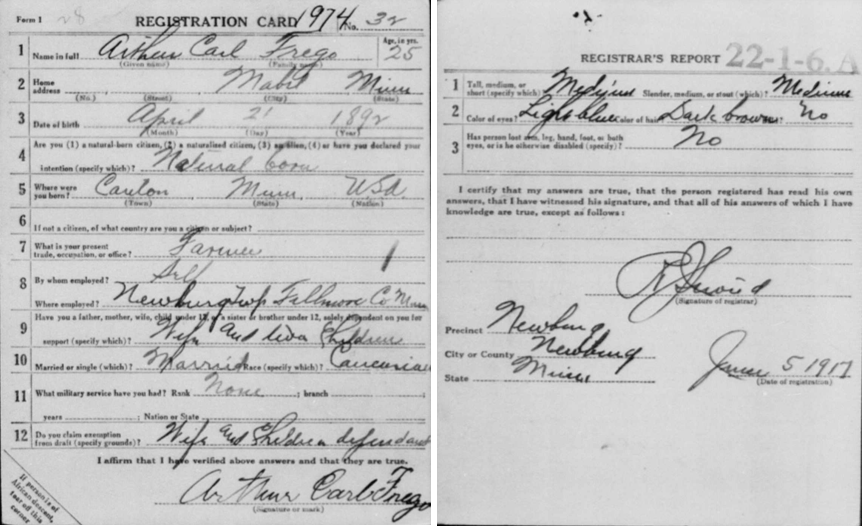 Form 1 28 REGISTRATION CARD 1974 No. 32
1 Name in full Arthur Carl Frego Age, in yrs. 25
(Given name) (Family name)
2 Home address Mabel Minn
(No.) (Street) (City) (State)
3 Date of birth April 21 1892
(Month) (Day) (Year)
Are you (1) a natural-born citizen, (2) a naturalized citizen, (3) an alien, (4) or have you declared your
4 intention (specify which)? Natural born
5 Where were you born? Canton Minn USA
(Town) (State) (Nation)
6 If not a citizen, of what country are you a citizen or subject?
7 What is your present trade, occupation, or office? Farmer
8 By whom employed? Self
Where employed? Newburg Twp. Fillmore Co Minn
9 Have you a father, mother, wife, child under 12, or a sister or brother under 12, solely dependent on you for
support (specify which)? Wife and two Children
10 Married or single (which)? Married Race (specify which)? Caucasian
11 What military service have you had? Rank None ; branch ;
years ; Nation or State
12 Do you claim exemption from draft (specify grounds)? Wife and Children dependant
I affirm that I have verified above answers and that they are true.
Arthur Carl Frego
(Signature or mark)
If person is of
African descent,
tear off this
corner
REGISTRAR'S REPORT 22-1-6. A
1 Tall, medium, or short (specify which)? Medium Slender, medium, or stout (which)? Medium
2 Color of eyes? Light blue Color of hair? Dark brown ? No
3 Has person lost arm, leg, hand, foot, or both
eyes, or is he otherwise disabled (specify)? No
I certify that my answers are true, that the person registered has read his own
answers, that I have witnessed his signature, and that all of his answers of which I have
knowledge are true, except as follows:
(Signature of registrar)
Precinct Newburg
City or County Newburg
State Minn
June 5 1917
(Date of registration)